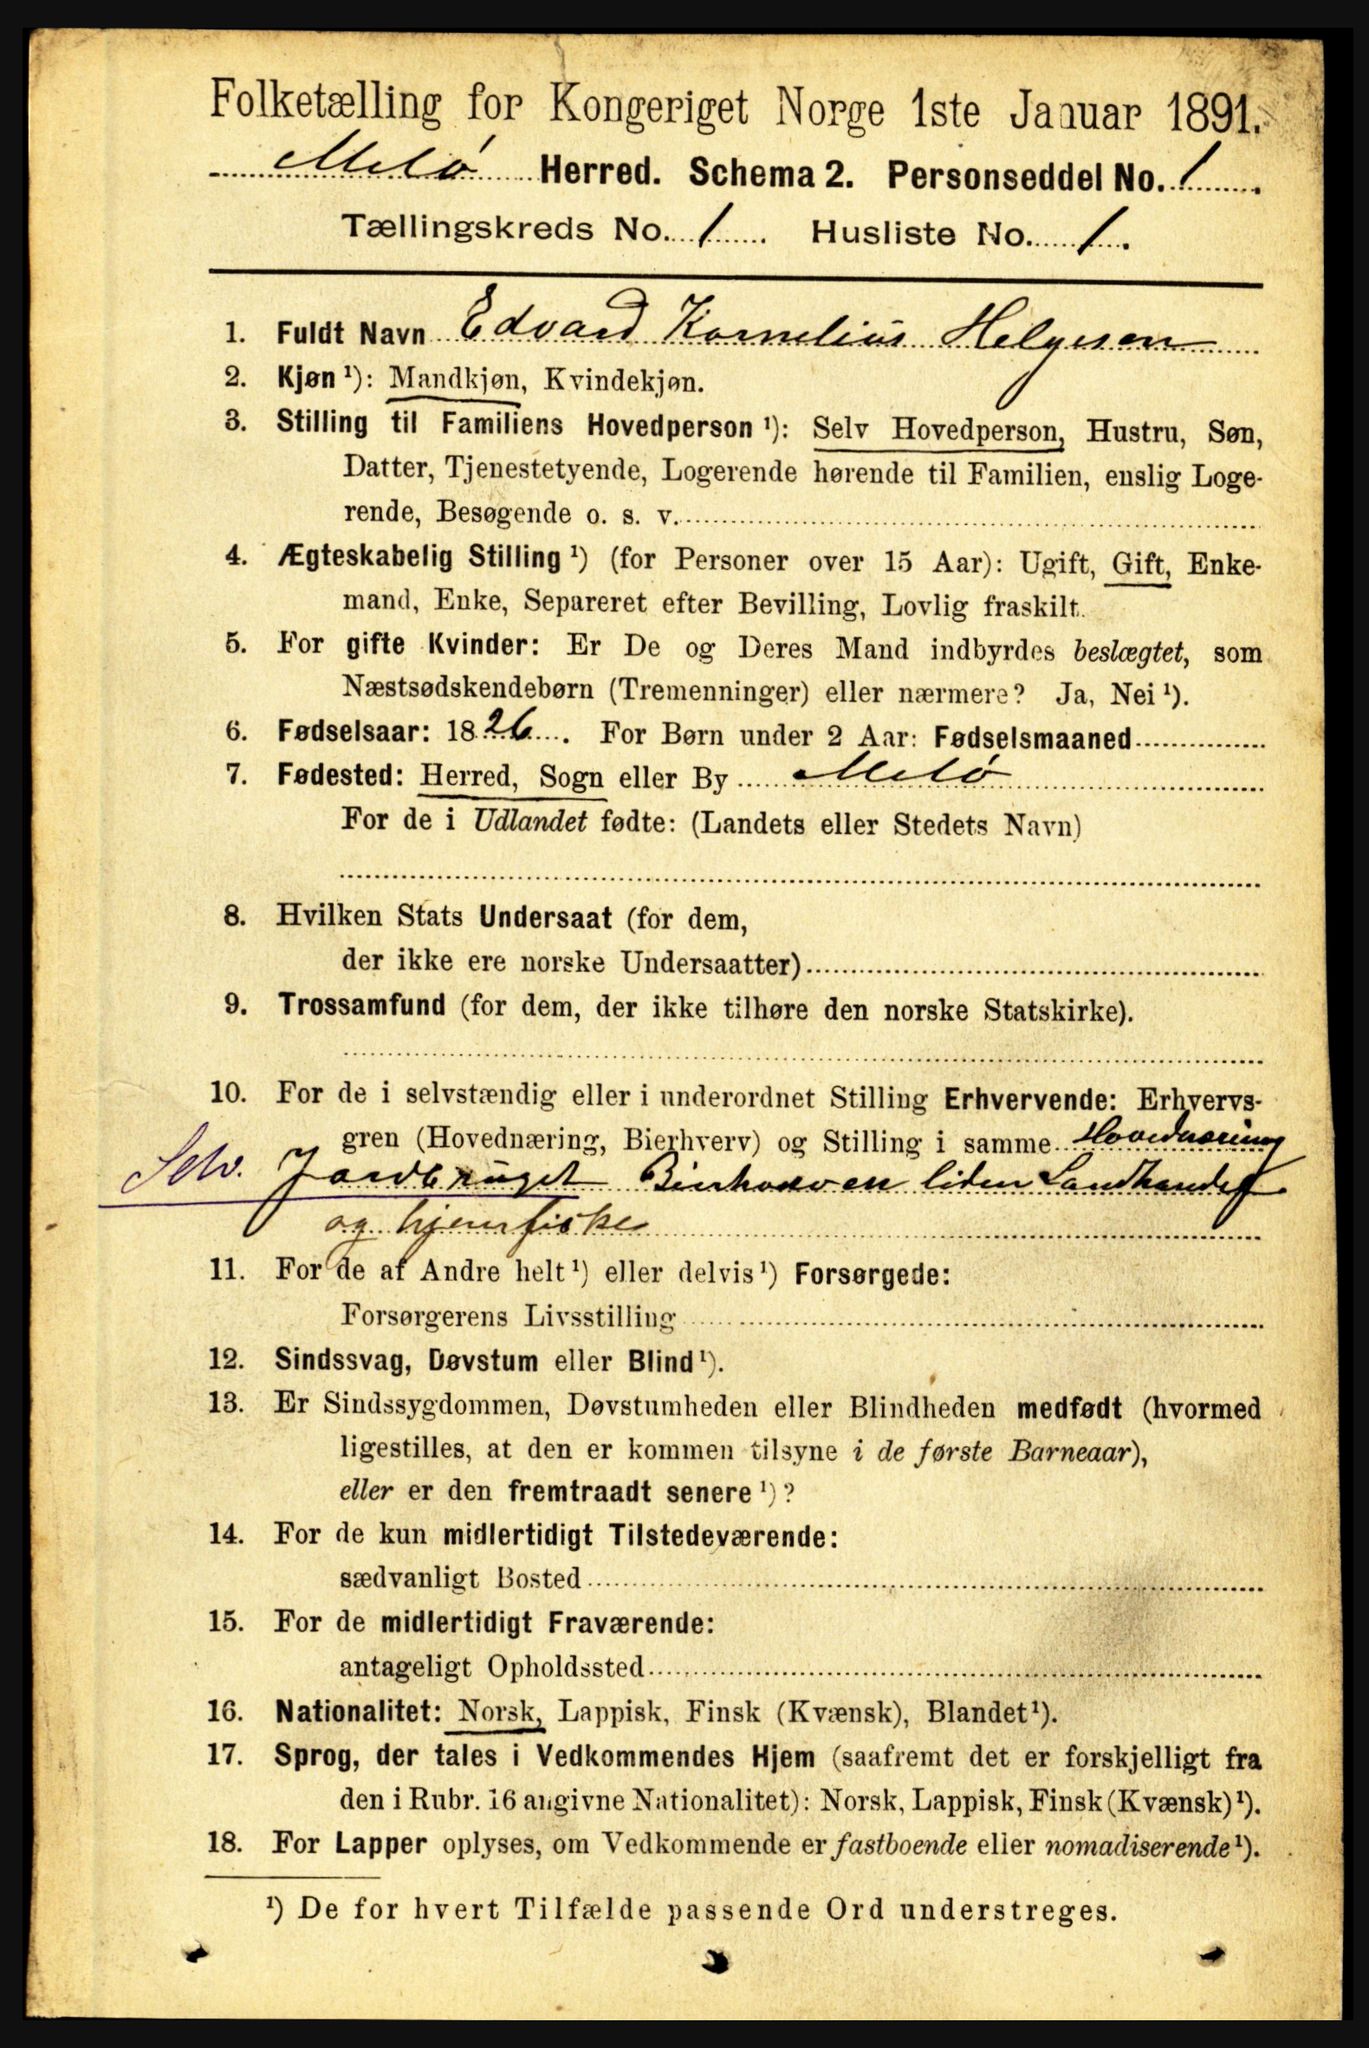 Folketælling for Kongeriget Norge 1ste Januar 1891.
Melø Herred. Schema 2. Personseddel No. 1
Tællingskreds No. 1 Husliste No. 1.
1. Fuldt Navn Edvard Kornelius Helgesen
2. Kjøn ¹): Mandkjøn, Kvindekjøn.
3. Stilling til Familiens Hovedperson ¹): Selv Hovedperson, Hustru, Søn,
Datter, Tjenestetyende, Logerende hørende til Familien, enslig Loge-
rende, Besøgende o. s. v.
4. Ægteskabelig Stilling ¹) (for Personer over 15 Aar): Ugift, Gift, Enke-
mand, Enke, Separeret efter Bevilling, Lovlig fraskilt.
5. For gifte Kvinder: Er De og Deres Mand indbyrdes beslægtet, som
Næstsødskendebørn (Tremenninger) eller nærmere? Ja, Nei ¹).
6. Fødselsaar: 1826. For Børn under 2 Aar: Fødselsmaaned
7. Fødested: Herred, Sogn eller By Melø
For de i Udlandet fødte: (Landets eller Stedets Navn)
8. Hvilken Stats Undersaat (for dem,
der ikke ere norske Undersaatter)
9. Trossamfund (for dem, der ikke tilhøre den norske Statskirke).
10. For de i selvstændig eller i underordnet Stilling Erhvervende: Erhvervs-
gren (Hovednæring, Bierhverv) og Stilling i samme Hovednæring
Selv. Jordbruget Bierhverven liden Landhandel
og hjemfiske
11. For de af Andre helt ¹) eller delvis ¹) Forsørgede:
Forsørgerens Livsstilling
12. Sindssvag, Døvstum eller Blind ¹).
13. Er Sindssygdommen, Døvstumheden eller Blindheden medfødt (hvormed
ligestilles, at den er kommen tilsyne i de første Barneaar),
eller er den fremtraadt senere ¹)?
14. For de kun midlertidigt Tilstedeværende:
sædvanligt Bosted
15. For de midlertidigt Fraværende:
antageligt Opholdssted
16. Nationalitet: Norsk, Lappisk, Finsk (Kvænsk), Blandet ¹).
17. Sprog, der tales i Vedkommendes Hjem (saafremt det er forskjelligt fra
den i Rubr. 16 angivne Nationalitet): Norsk, Lappisk, Finsk (Kvænsk) ¹).
18. For Lapper oplyses, om Vedkommende er fastboende eller nomadiserende ¹).
¹) De for hvert Tilfælde passende Ord understreges.